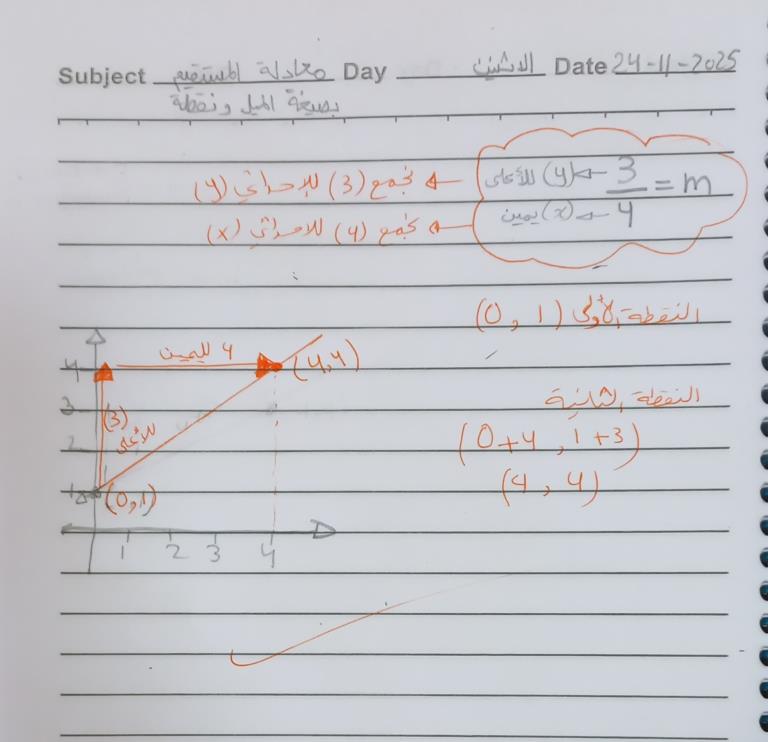 Subject معادلة المستقيم Day الاثنين Date 24-11-2025
بصيغة الميل ونقطة
m = 3/4
3 ← (y) للأعلى ← نجمع (3) للإحداثي (y)
4 ← (x) يمين ← نجمع (4) للإحداثي (x)
النقطة الأولى (0, 1)
النقطة الثانية
(0+4, 1+3)
(4, 4)
4 لليمين
(4,4)
4
3
2
1
(3)
للأعلى
(0,1)
1 2 3 4